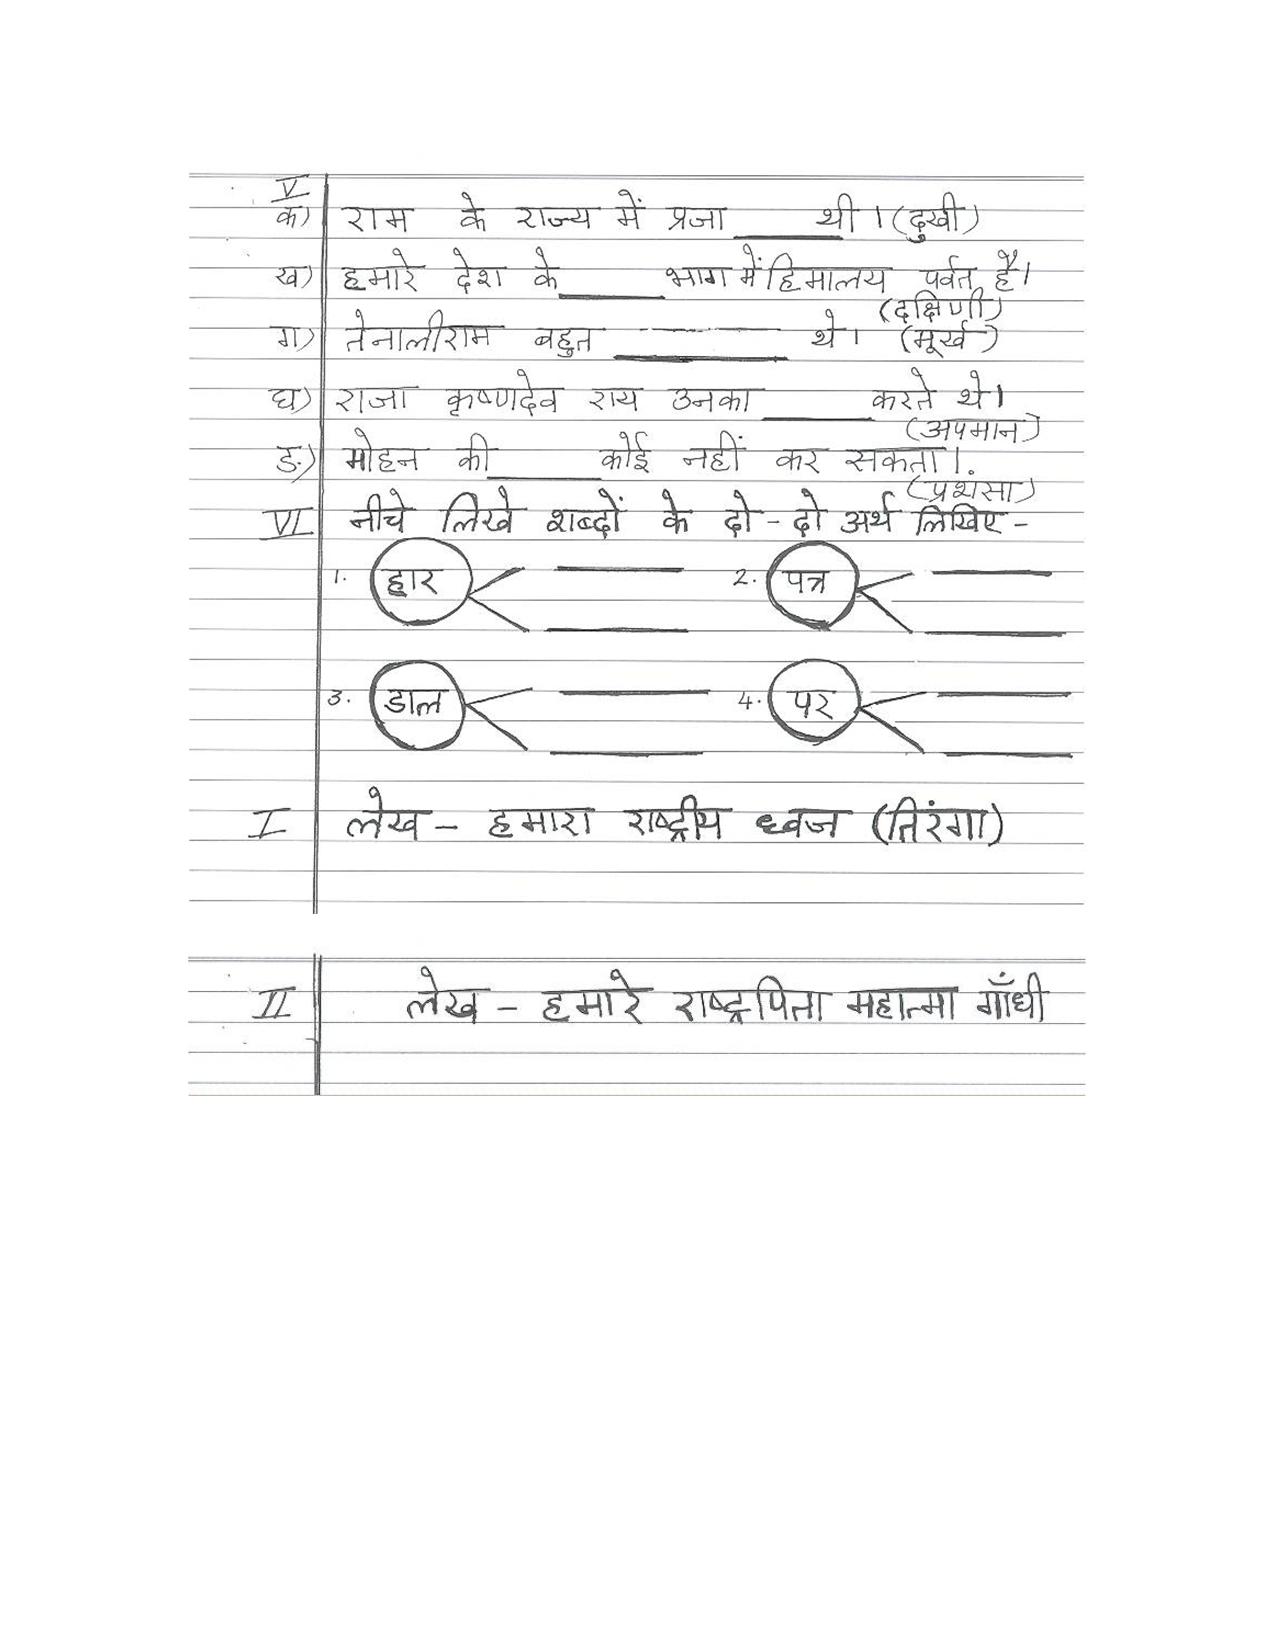 V
क) राम के राज्य में प्रजा ____ थी । (दुखी)
ख) हमारे देश के ____ भाग में हिमालय पर्वत है।
(दक्षिणी)
ग) तेनालीराम बहुत ____ थे। (मूर्ख)
घ) राजा कृष्णदेव राय उनका ____ करते थे।
(अपमान)
ङ) मोहन की ____ कोई नहीं कर सकता।
(प्रशंसा)
VI नीचे लिखे शब्दों के दो - दो अर्थ लिखिए -
1. हार 2. पत्र
3. डाल 4. पर
I लेख - हमारा राष्ट्रीय ध्वज (तिरंगा)
II लेख - हमारे राष्ट्रपिता महात्मा गाँधी